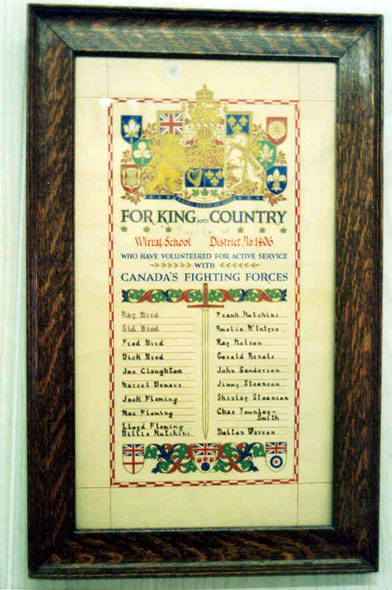 FOR KING AND COUNTRY
Wirral School District No. 1406
WHO HAVE VOLUNTEERED FOR ACTIVE SERVICE
WITH
CANADA'S FIGHTING FORCES
Ray Bird
Sid Bird
Fred Bird
Dick Bird
Joe Claughton
Marcel Demars
Jack Fleming
Max Fleming
Lloyd Fleming
Billie Hutchins
Frank Hutchins
Roelia McIntyre
Ray Molson
Gerald Renals
John Sanderson
Jimmy Stevenson
Shirley Stevenson
Chas Townley-
Smith
Dalton Warren